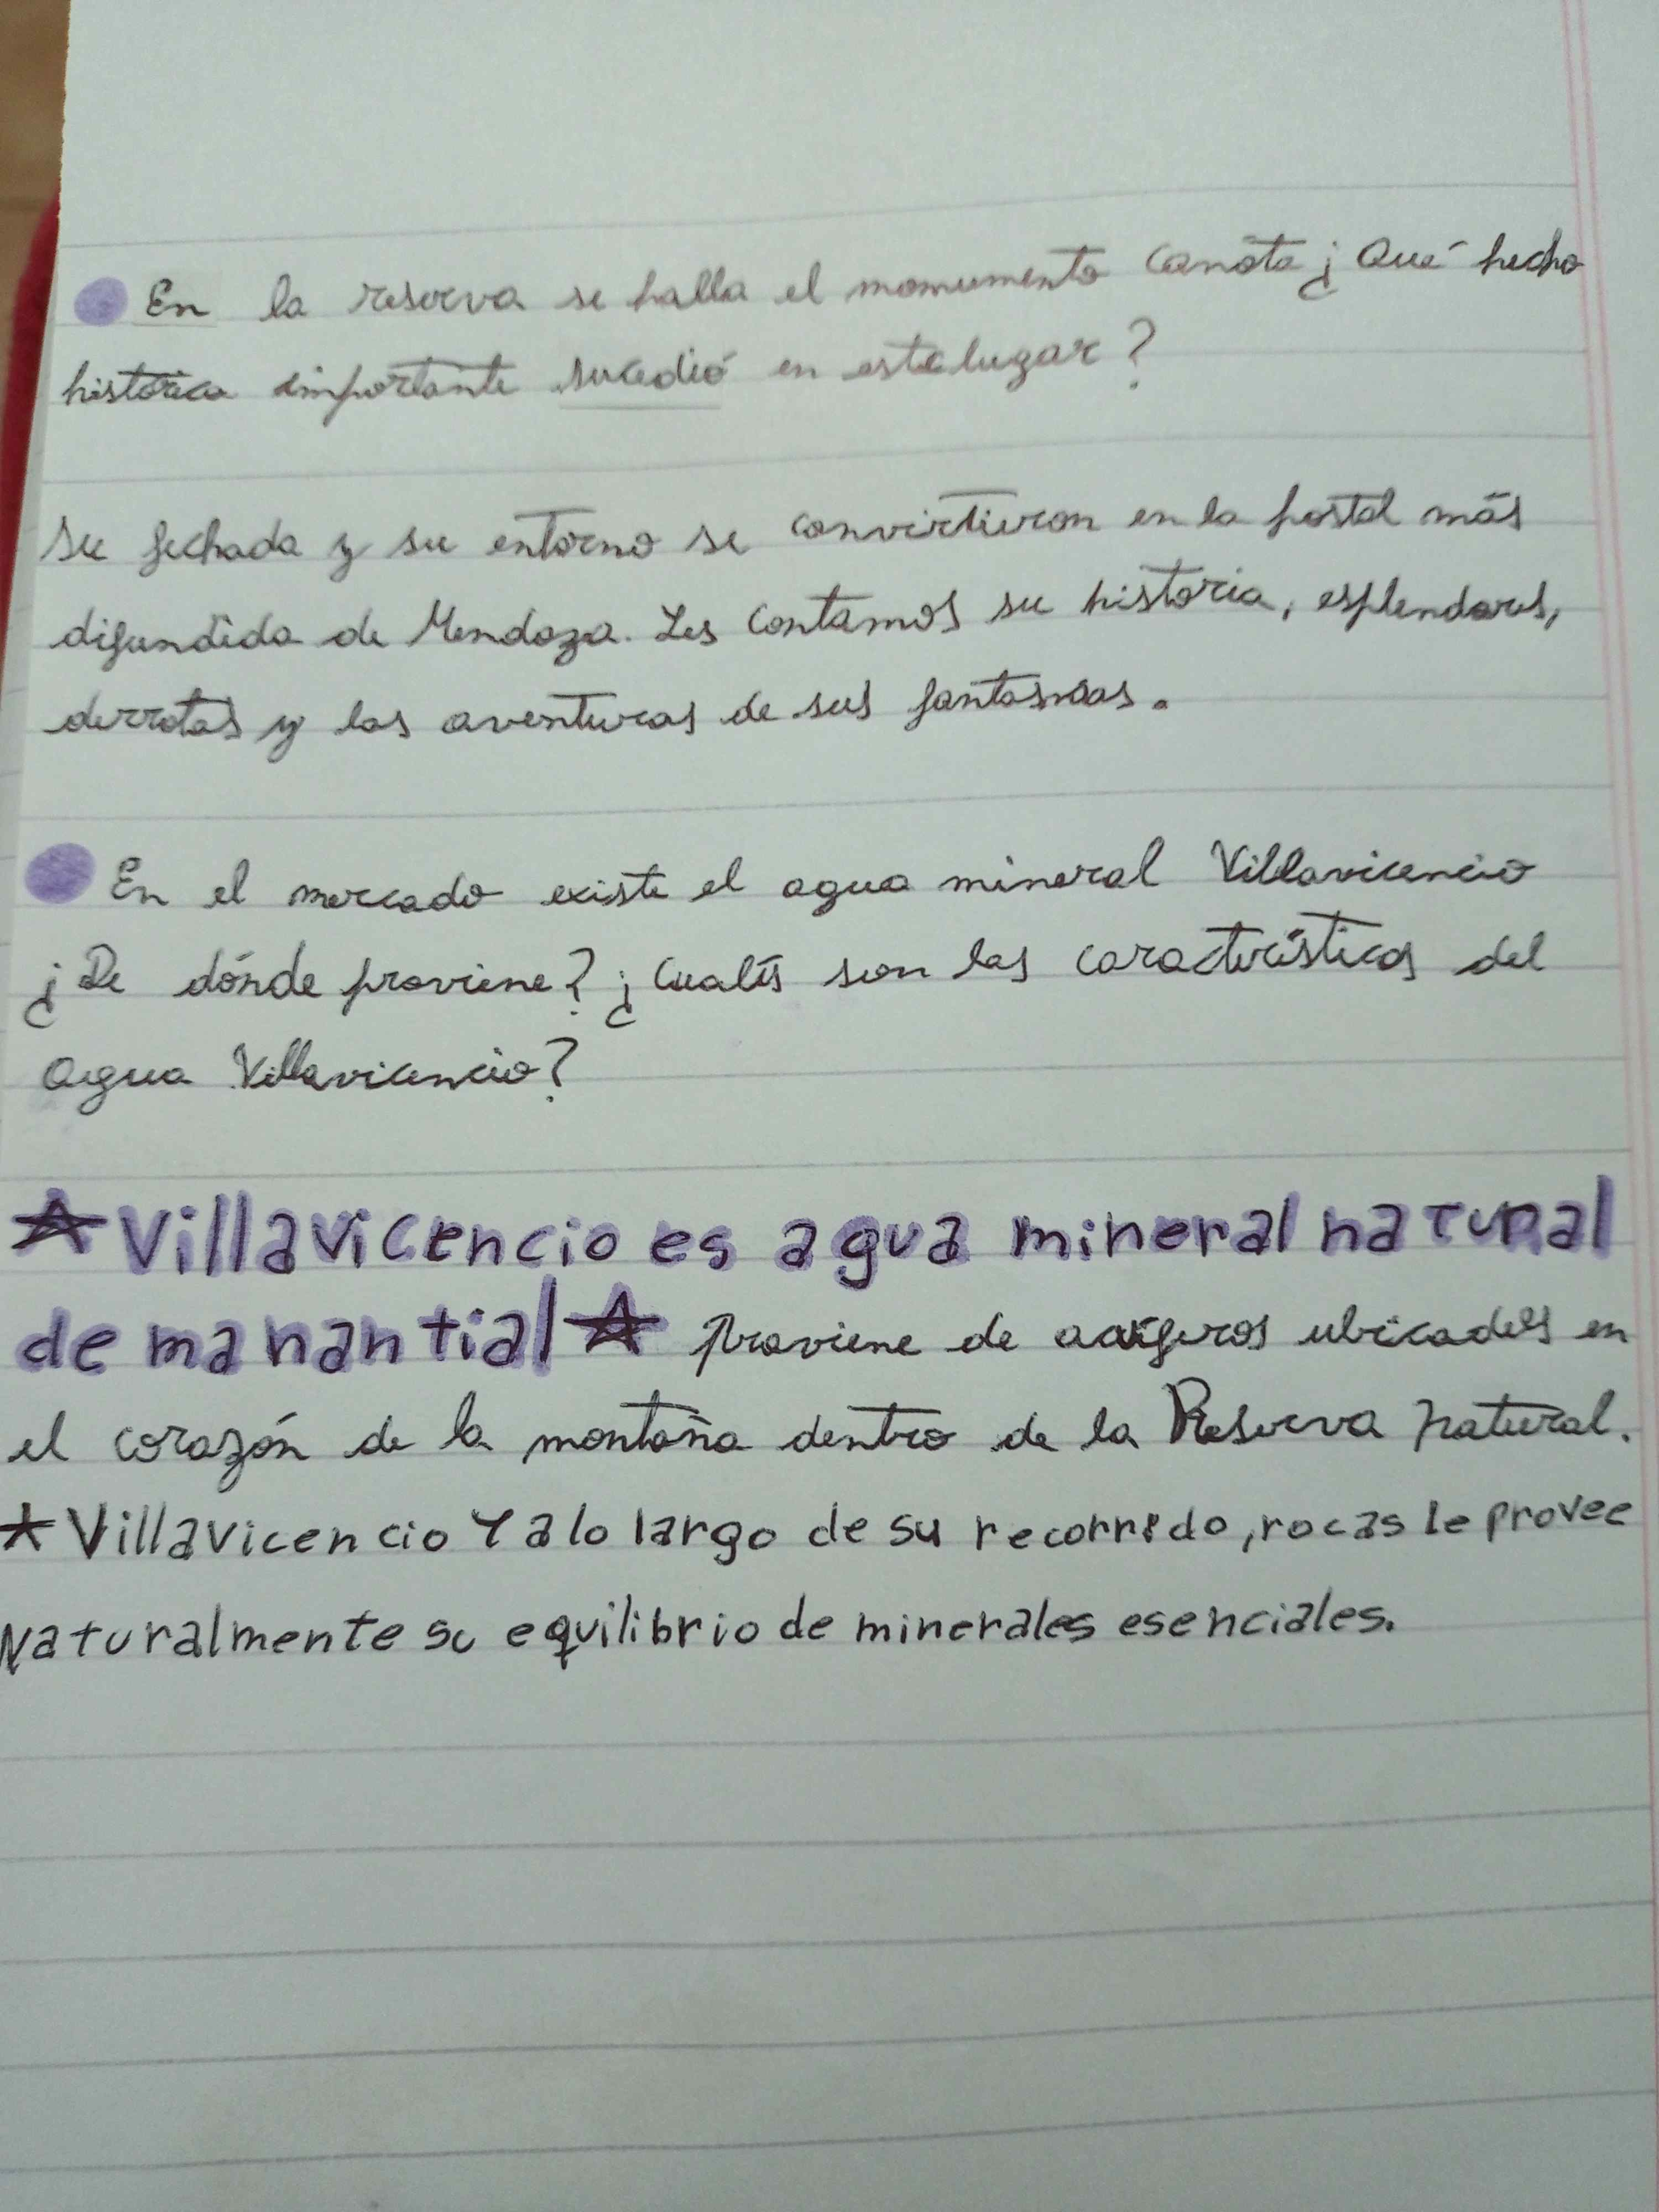 En la reserva se halla el monumento Canota ¿Qué hecho
histórico importante sucedió en este lugar?
Su fechada y su entorno se convirtieron en la postal más
difundida de Mendoza. Les contamos su historia, esplendores,
derrotas y las aventuras de sus fantasmas.
En el mercado existe el agua mineral Villavicencio
¿De dónde proviene? ¿Cuales son las características del
agua Villavicencio?
Villavicencio es agua mineral natural
de manantial proviene de acuíferos ubicados en
el corazón de la montaña dentro de la Reserva natural.
Villavicencio Y a lo largo de su recorrido, rocas le provee
Naturalmente su equilibrio de minerales esenciales.